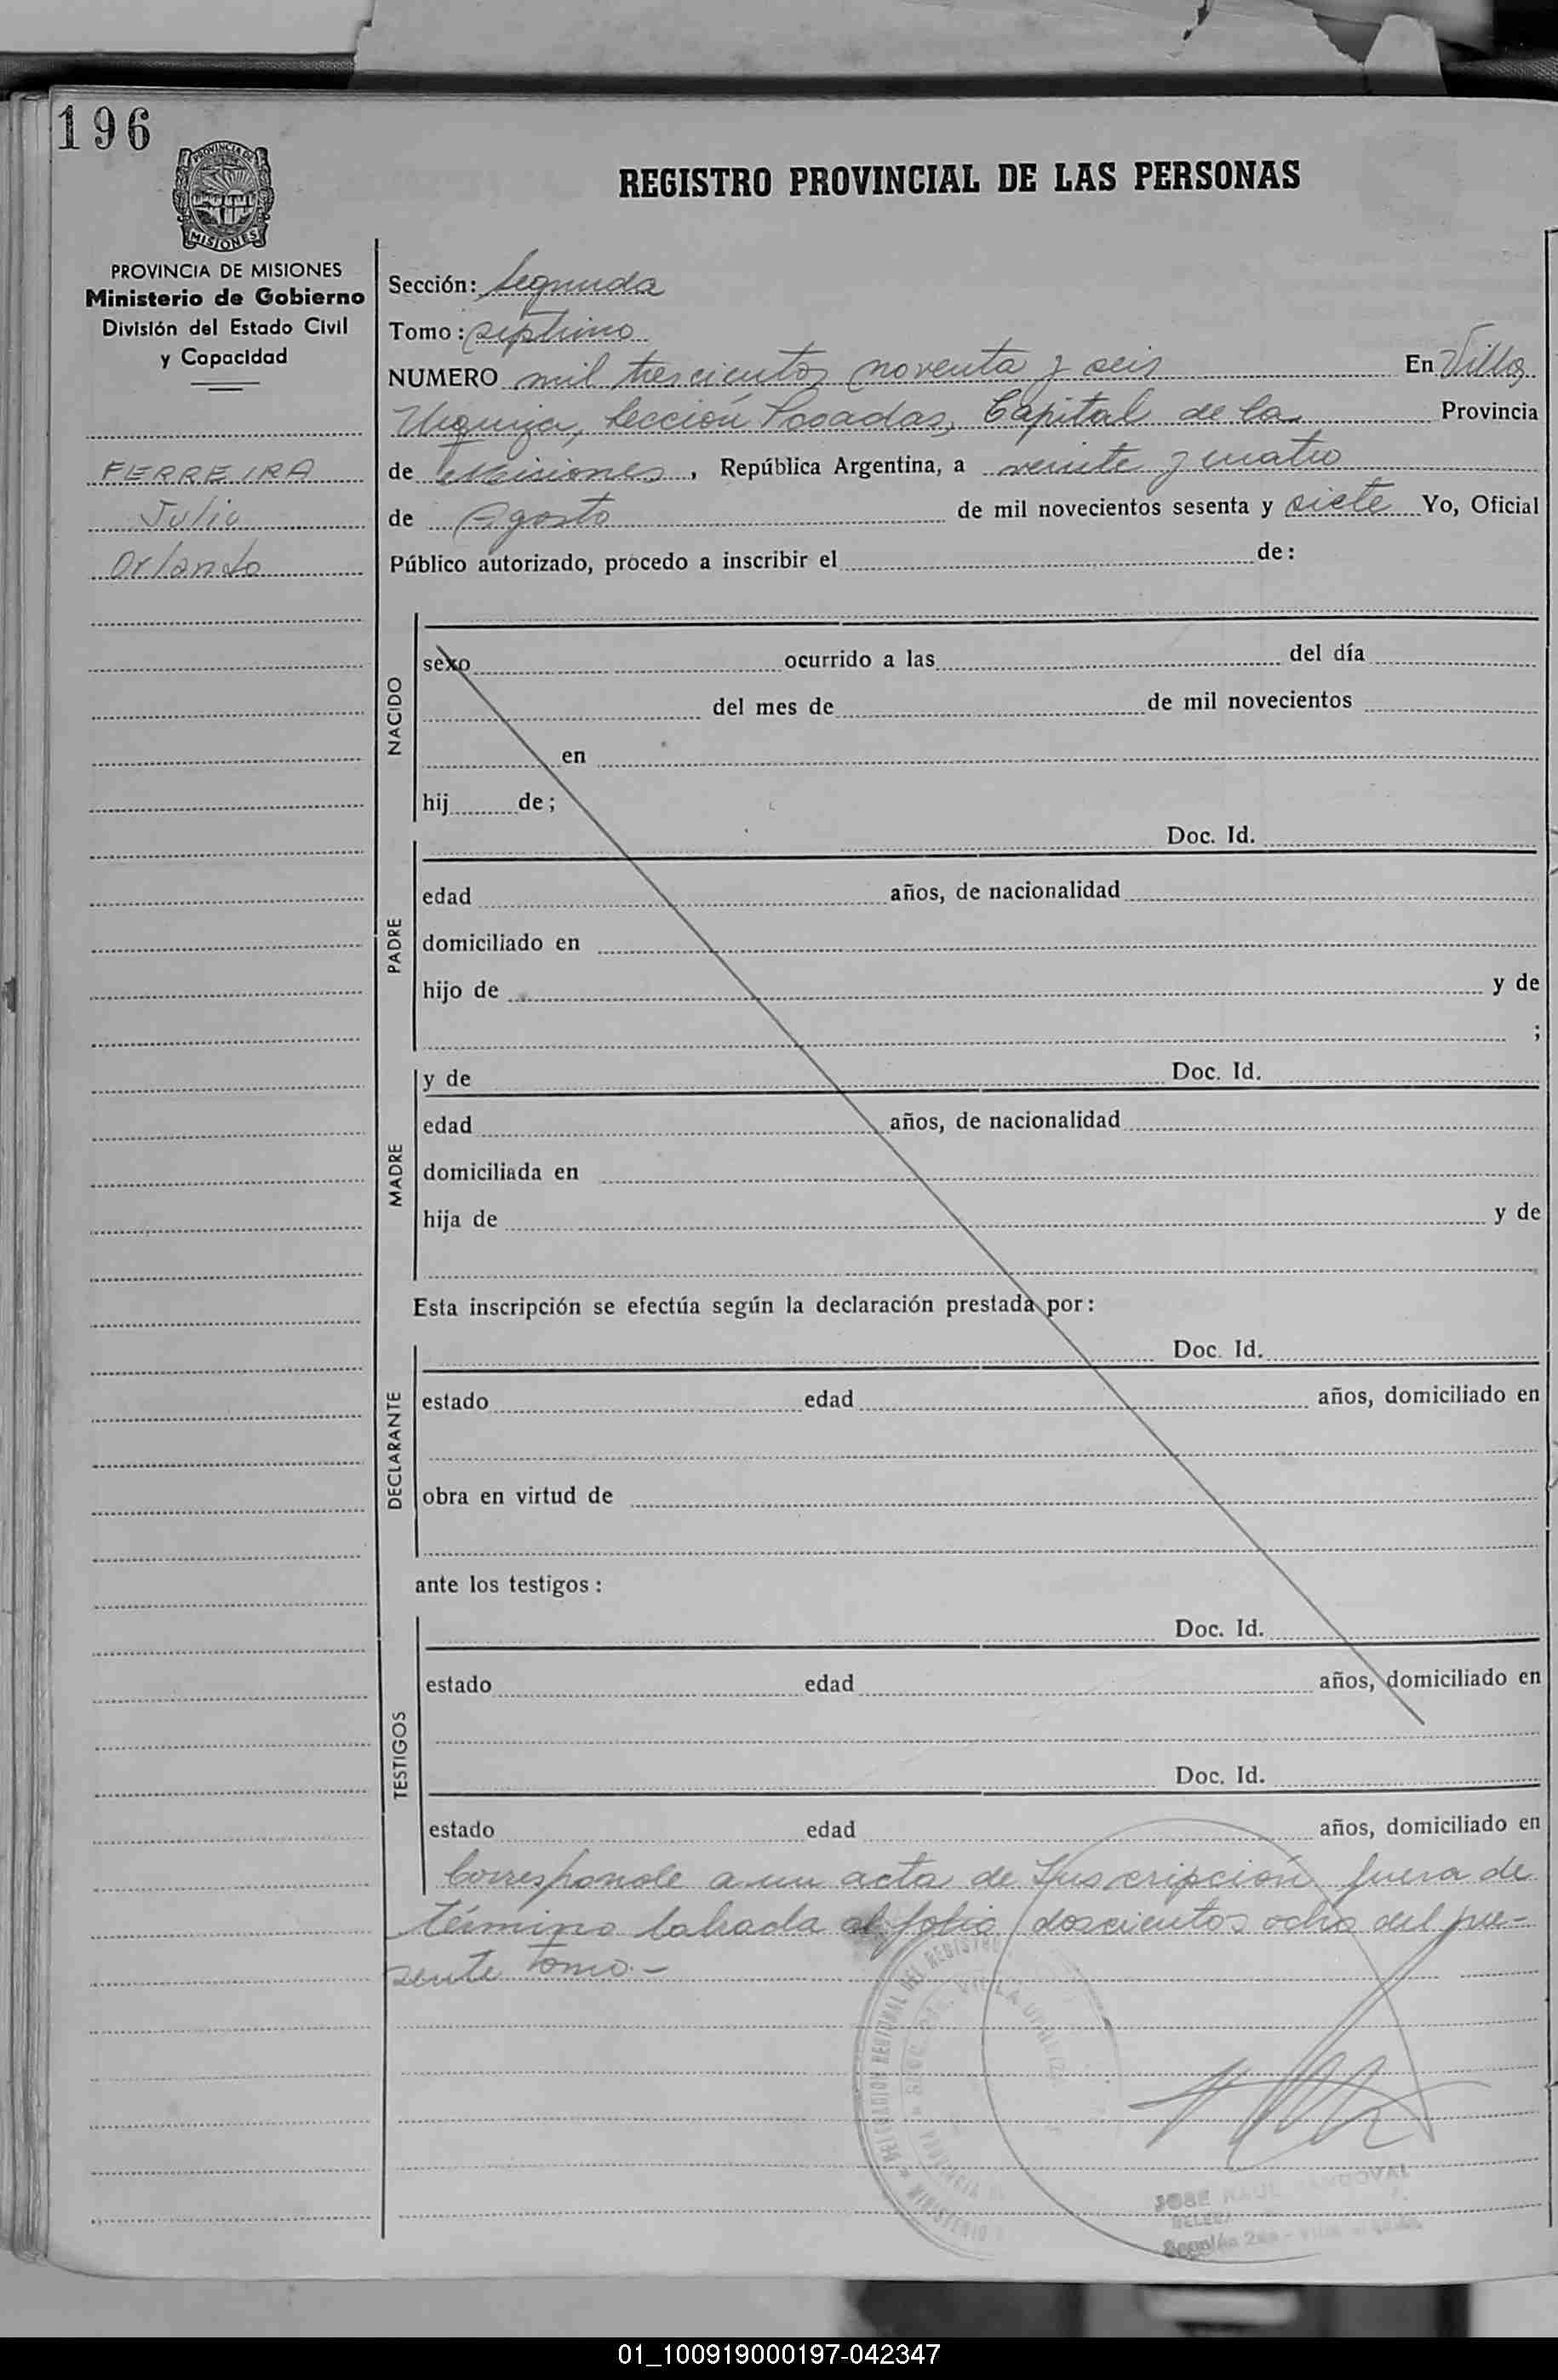 196
PROVINCIA DE
MISIONES
REGISTRO PROVINCIAL DE LAS PERSONAS
PROVINCIA DE MISIONES
Ministerio de Gobierno
División del Estado Civil
y Capacidad
FERREIRA
Julio
Orlando
Sección: Segunda
Tomo: Septimo
NUMERO mil trescientos noventa y seis En Villa
Urquiza, Sección Posadas, Capital de la Provincia
de Misiones, República Argentina, a veinte y cuatro
de Agosto de mil novecientos sesenta y siete Yo, Oficial
Público autorizado, procedo a inscribir el de:
NACIDO
sexo ocurrido a las del día
del mes de de mil novecientos
en
hij de;
PADRE
Doc. Id.
edad años, de nacionalidad
domiciliado en
hijo de y de
;
MADRE
y de Doc. Id.
edad años, de nacionalidad
domiciliada en
hija de y de
Esta inscripción se efectúa según la declaración prestada por:
DECLARANTE
Doc. Id.
estado edad años, domiciliado en
obra en virtud de
ante los testigos:
TESTIGOS
Doc. Id.
estado edad años, domiciliado en
Doc. Id.
estado edad años, domiciliado en
Corresponde a un acta de Inscripción fuera de
término labrada al folio doscientos ocho del pre-
sente Tomo.-
DELEGACION REGIONAL DEL REGISTRO
VILLA URQUIZA
MINISTERIO
JOSE RAUL SANDOVAL
01_100919000197-042347